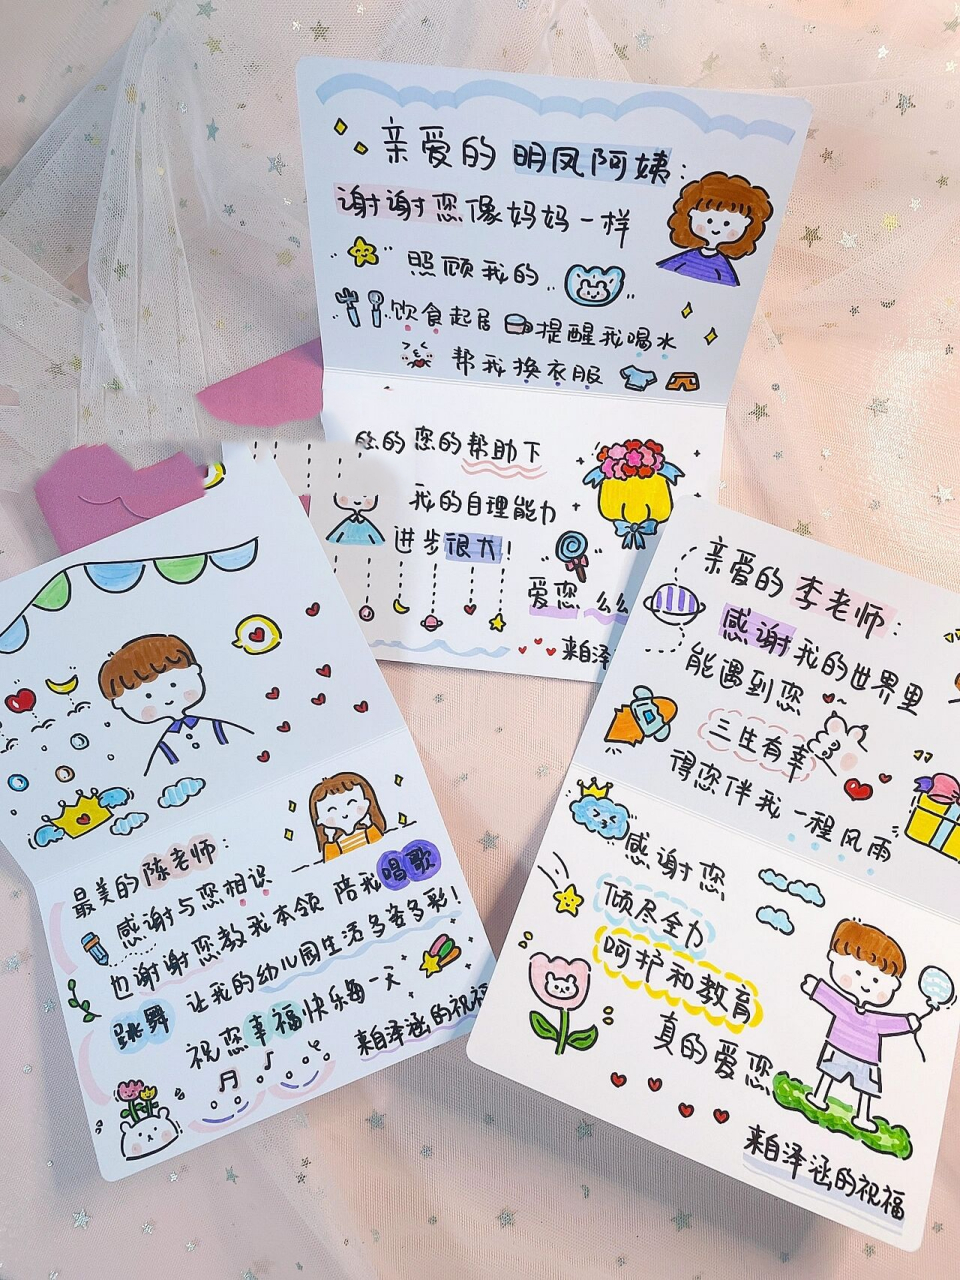 亲爱的 明凤阿姨:
谢谢您像妈妈一样
照顾我的
饮食起居 提醒我喝水
帮我换衣服
您的 您的帮助下
我的自理能力
进步很大!
爱您 么么
来自泽
最美的陈老师:
感谢与您相识
也谢谢您教我本领 陪我唱歌
跳舞 让我的幼儿园生活多姿多彩!
祝您幸福快乐每一天
来自泽涵的祝福
亲爱的 李老师:
感谢我的世界里
能遇到您
三生有幸
得您伴我一程风雨
感谢您
倾尽全力
呵护和教育
真的爱您
来自泽涵的祝福